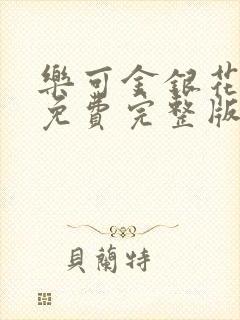 樂可金銀花
免費完整版
貝蘭特